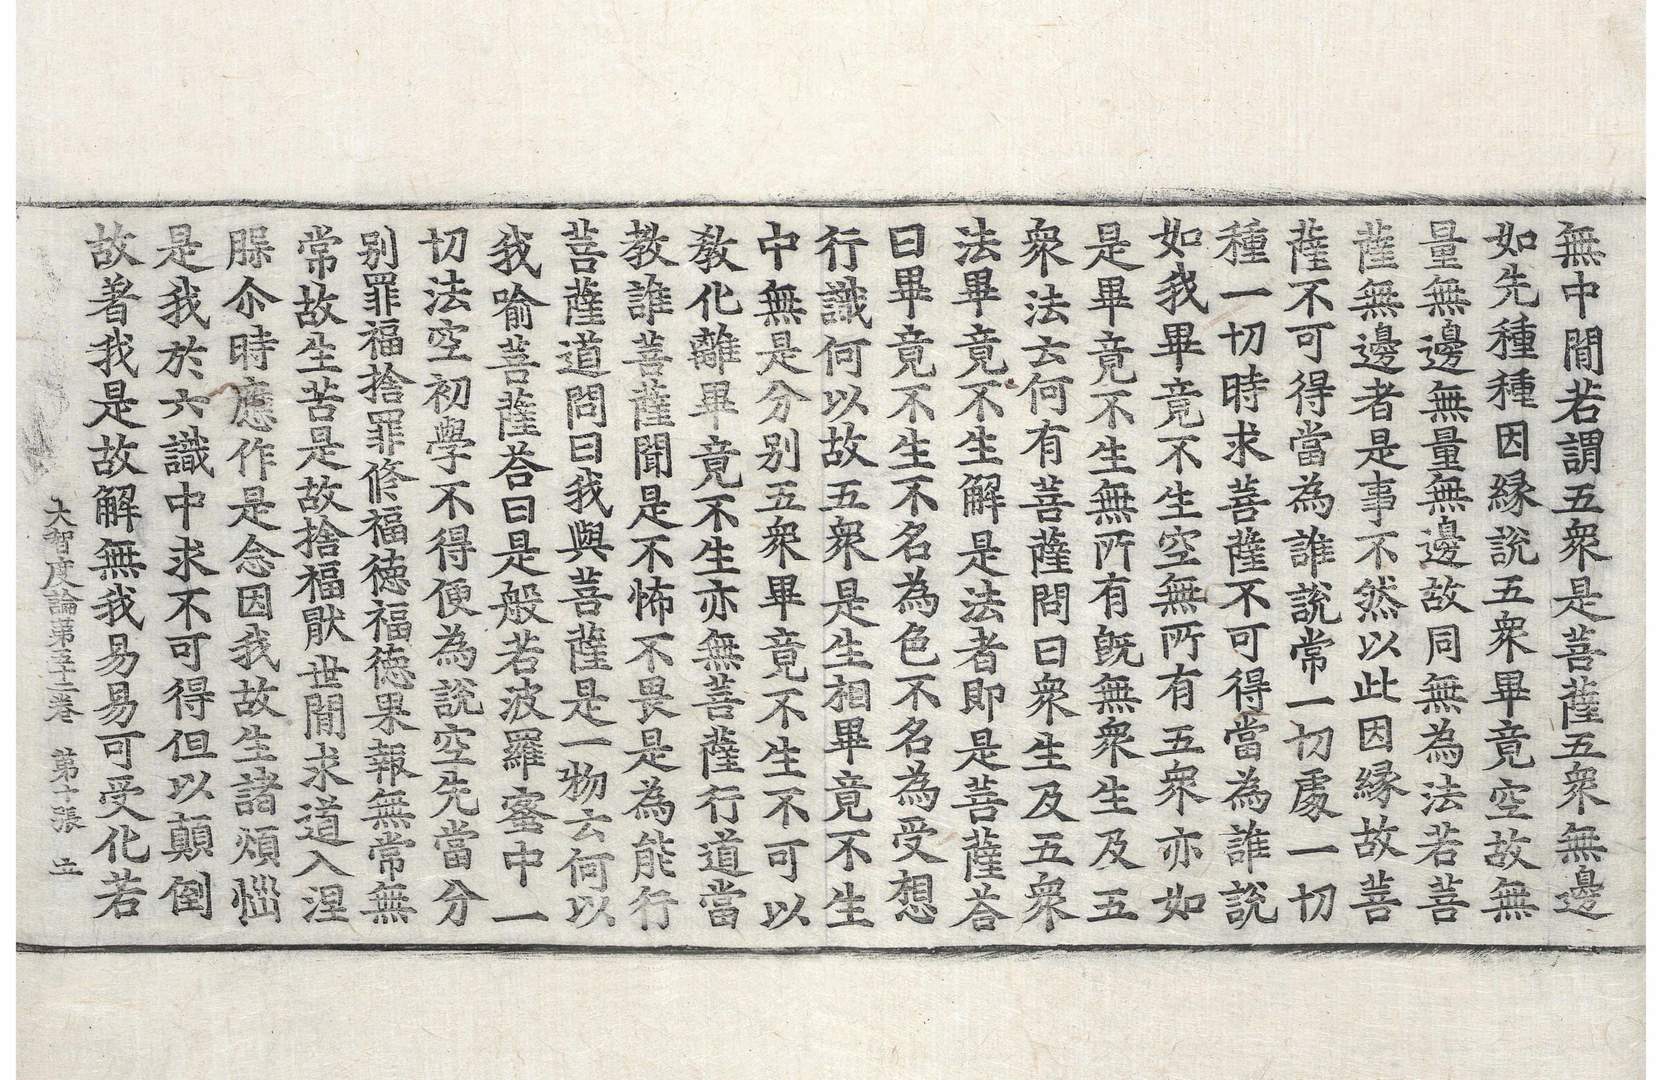 無中閒若謂五衆是菩薩五衆無邊
如先種種因緣說五衆畢竟空故無
量無邊無量無邊故同無為法若菩
薩無邊者是事不然以此因緣故菩
薩不可得當為誰說常一切處一切
種一切時求菩薩不可得當為誰說
如我畢竟不生空無所有五衆亦如
是畢竟不生無所有旣無衆生及五
衆法云何有菩薩問曰衆生及五衆
法畢竟不生解是法者即是菩薩荅
曰畢竟不生不名為色不名為受想
行識何以故五衆是生相畢竟不生
中無是分別五衆畢竟不生不可以
敎化離畢竟不生亦無菩薩行道當
教誰菩薩聞是不怖不畏是為能行
菩薩道問曰我與菩薩是一物云何以
我喻菩薩荅曰是般若波羅蜜中一
切法空初學不得便為說空先當分
別罪福捨罪修福德福德果報無常無
常故生苦是故捨福猒世閒求道入涅
𦜆尒時應作是念因我故生諸煩惱
是我於六識中求不可得但以顛倒
故著我是故解無我易易可受化若
大智度論第五十二卷　第十張　立